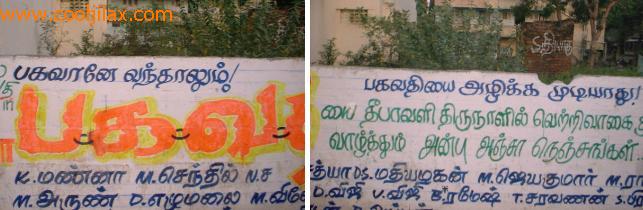 www.cooljilax.com
பகவானே வந்தாலும்!
பகவ
K.மண்னா M.செந்தில் N.ச
M.அருண் D.எழுமலை M.விே
பகவதியை அழிக்க முடியாது!
யை தீபாவளி திருநாளில் வெற்றிவாகை
வாழ்த்தும் அன்பு அஞ்சா நெஞ்சங்கள்
த்யா D.S.மதியழகன் M.ஜெயகுமார் M.ரா
D.விஜி V.விஜி B.ரமேஷ் T.சரவணன் S.